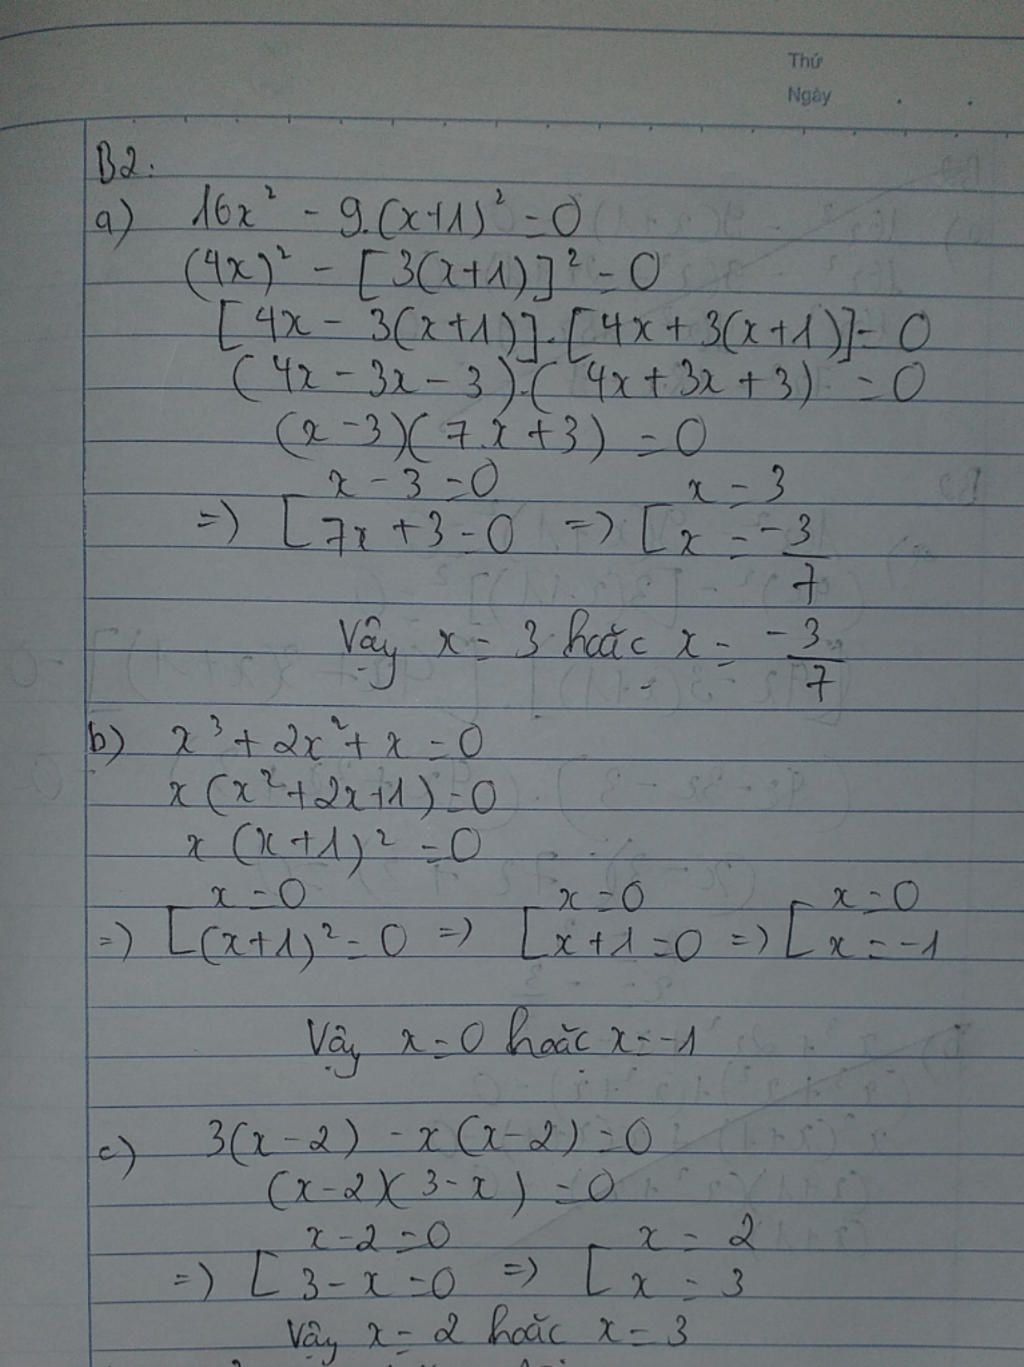 Thứ
Ngày
B2:
a) 16x² - 9.(x+1)² = 0
(4x)² - [3(x+1)]² = 0
[4x - 3(x+1)].[4x + 3(x+1)] = 0
(4x - 3x - 3).(4x + 3x + 3) = 0
(x - 3)(7x + 3) = 0
x - 3 = 0 x = 3
=) [ 7x + 3 = 0 =) [ x = -3/7
Vậy x = 3 hoặc x = -3/7
b) x³ + 2x² + x = 0
x(x² + 2x + 1) = 0
x(x+1)² = 0
x = 0 x = 0 x = 0
=) [ (x+1)² = 0 =) [ x + 1 = 0 =) [ x = -1
Vậy x = 0 hoặc x = -1
c) 3(x - 2) - x(x - 2) = 0
(x - 2)(3 - x) = 0
x - 2 = 0 x = 2
=) [ 3 - x = 0 =) [ x = 3
Vậy x = 2 hoặc x = 3